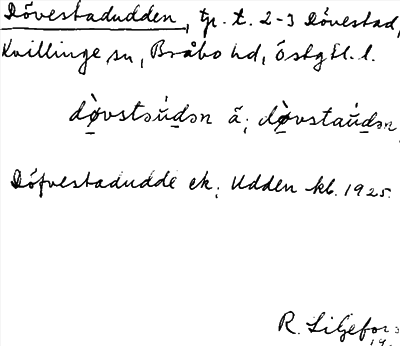 Dövestadudden, tp. t. 2-3 Dövestad,
Kvillinge sn, Bråbo hd, Östgtl. l.
dø̀vstəúdən ä; dø̀vstaúdən
Döfvestadudde ek; Udden kb. 1925.
R. Liljefors